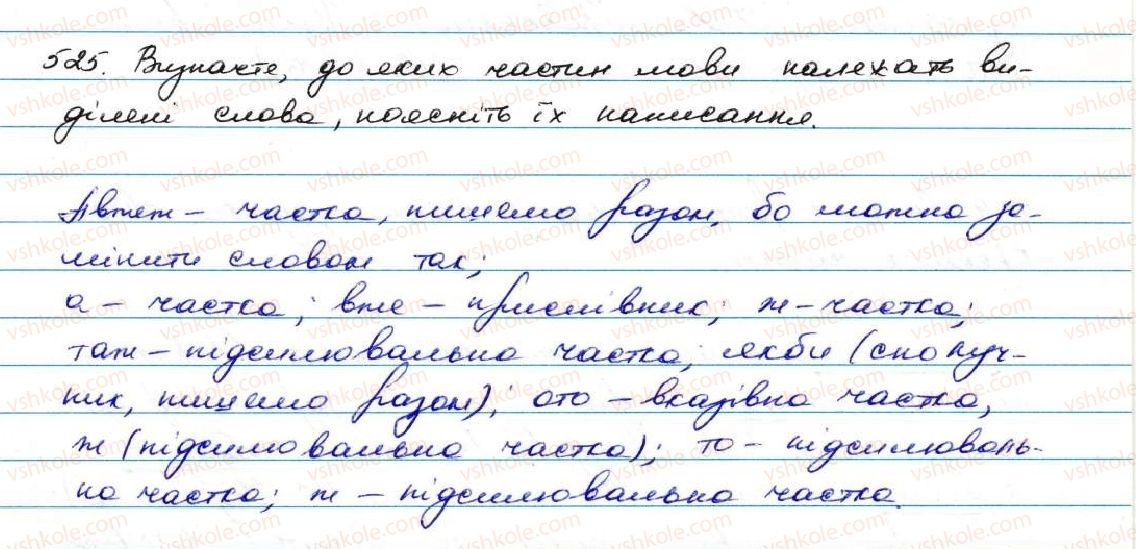 525. Визначте, до яких частин мови належать ви-
ділені слова, поясніть їх написання.
Авжеж – частка, пишемо разом, бо можна за-
мінити словом так;
а – частка; вже – прислівник; ж – частка;
таж – підсилювальна частка; якби (сполуч-
ник, пишемо разом); ото – вказівна частка,
ж (підсилювальна частка); то – підсилюваль-
на частка; ж – підсилювальна частка.